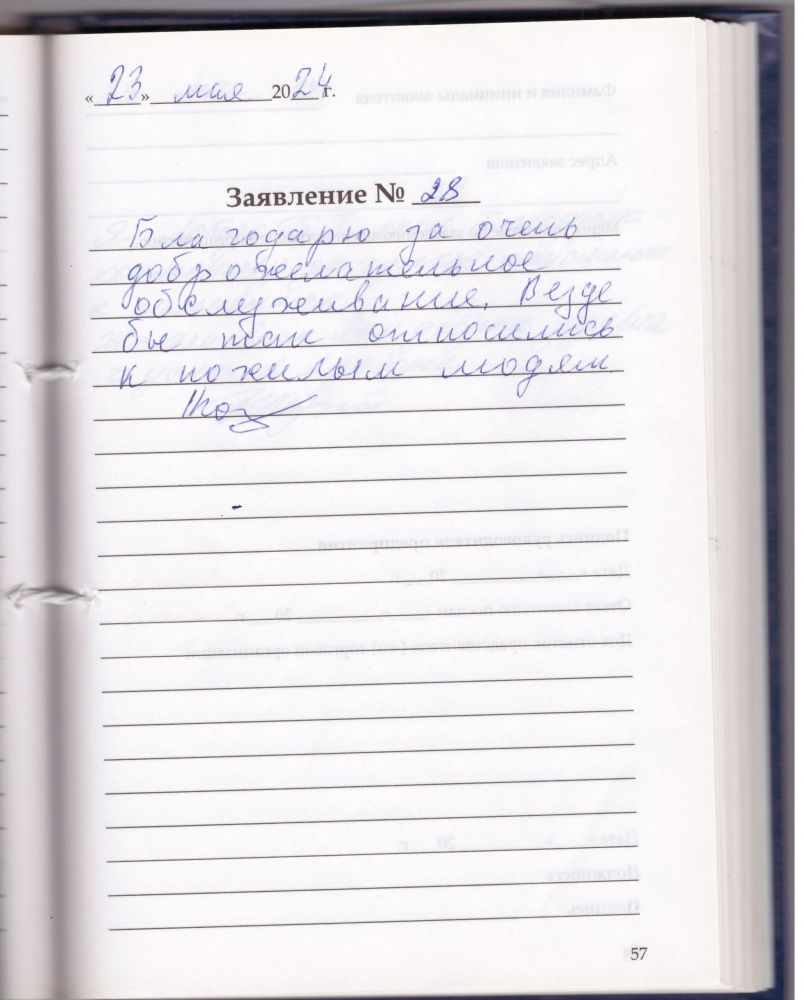 «23» мая 2024 г.
Заявление № 28
Благодарю за очень
доброжелательное
обслуживание. Везде
бы так относились
к пожилым людям
57